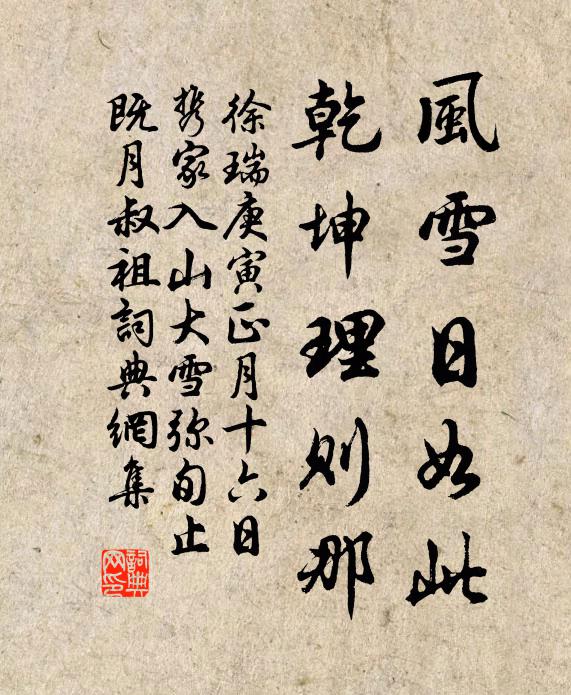 風雪日如此
乾坤理則那
徐瑞庚寅正月十六日
携家入山大雪弥旬止
既月叔祖詞典網集
詞典网印